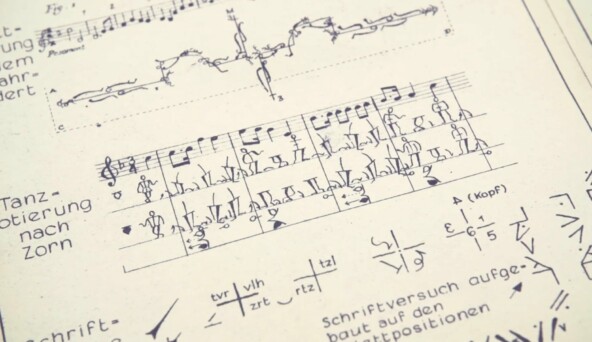 ung
dem
ahr-
dert
Tanz-
otierung
nach
Zorn
(Kopf)
tvr vlh
zrt
tzl
rtz
6 1
5
Schrift-
Schriftversuch aufge-
baut auf den
ttpositionen